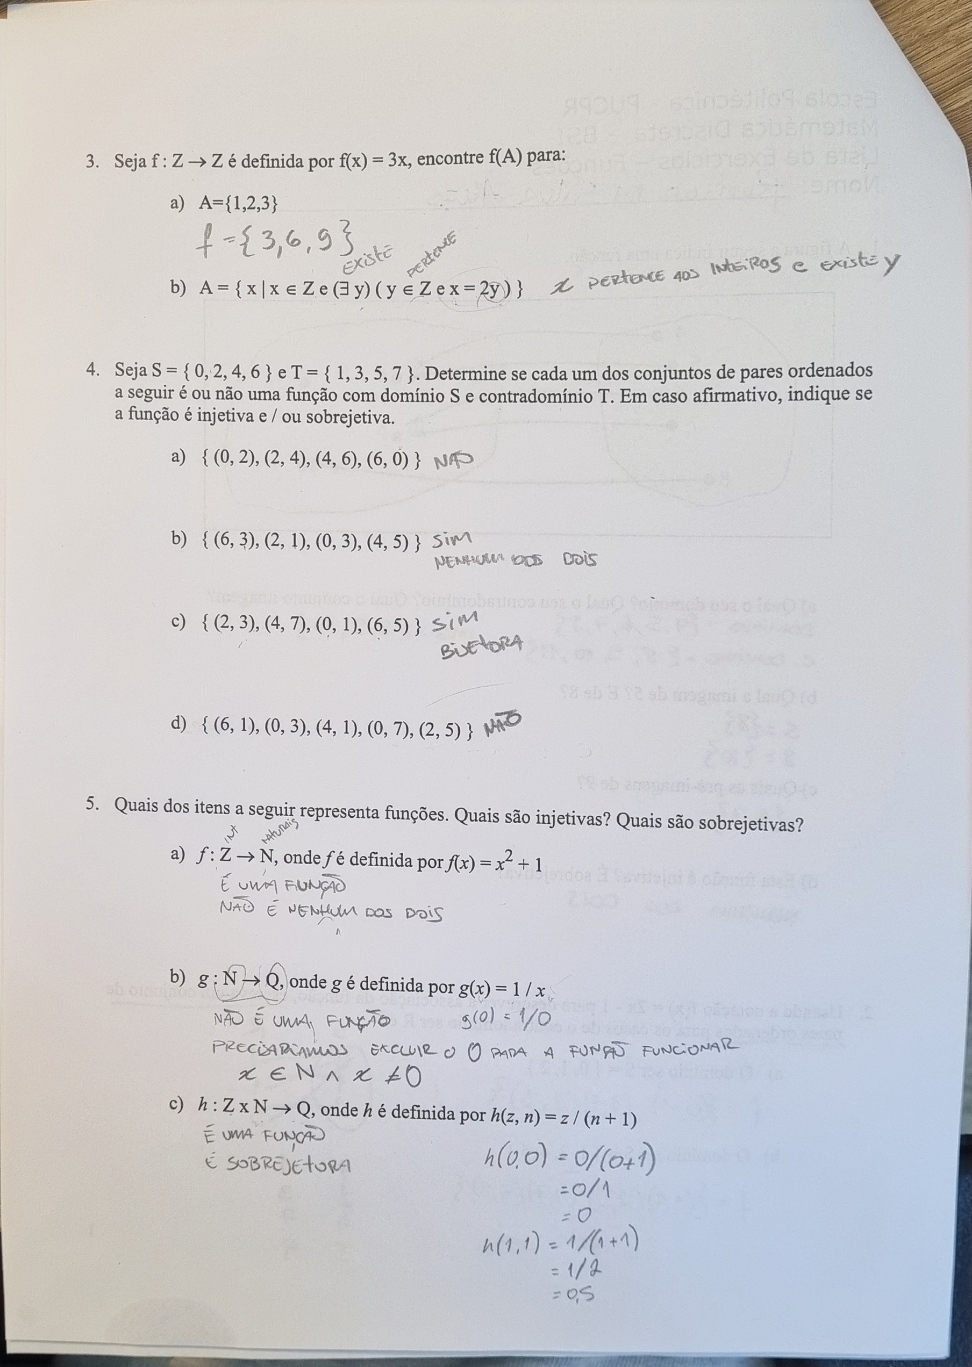 Escola Politécnica - PUCPR
Matemática Discreta - BSI
Lista de Exercícios – Funções
Nome:
3. Seja f : Z → Z é definida por f(x) = 3x, encontre f(A) para:
a) A={1,2,3}
f = {3,6,9}
EXISTE PERTENCE
b) A = { x | x ∈ Z e (∃ y) ( y ∈ Z e x = 2y ) } x PERTENCE AOS INTEIROS e EXISTE y
4. Seja S = { 0, 2, 4, 6 } e T = { 1, 3, 5, 7 }. Determine se cada um dos conjuntos de pares ordenados
a seguir é ou não uma função com domínio S e contradomínio T. Em caso afirmativo, indique se
a função é injetiva e / ou sobrejetiva.
a) { (0, 2), (2, 4), (4, 6), (6, 0) } NÃO
b) { (6, 3), (2, 1), (0, 3), (4, 5) } SIM
NENHUM DOS DOIS
c) { (2, 3), (4, 7), (0, 1), (6, 5) } SIM
BIJETORA
d) { (6, 1), (0, 3), (4, 1), (0, 7), (2, 5) } NÃO
5. Quais dos itens a seguir representa funções. Quais são injetivas? Quais são sobrejetivas?
INT naturais
a) f : Z → N, onde f é definida por f(x) = x² + 1
É UMA FUNÇÃO
NÃO É NENHUM DOS DOIS
b) g : N → Q, onde g é definida por g(x) = 1 / x
NÃO É UMA FUNÇÃO g(0) = 1/0
PRECISARIAMOS EXCLUIR O 0 PARA A FUNÇÃO FUNCIONAR
x ∈ N ∧ x ≠ 0
c) h : Z x N → Q, onde h é definida por h(z, n) = z / (n + 1)
É UMA FUNÇÃO
É SOBREJETORA h(0,0) = 0/(0+1)
= 0/1
= 0
h(1,1) = 1/(1+1)
= 1/2
= 0,5